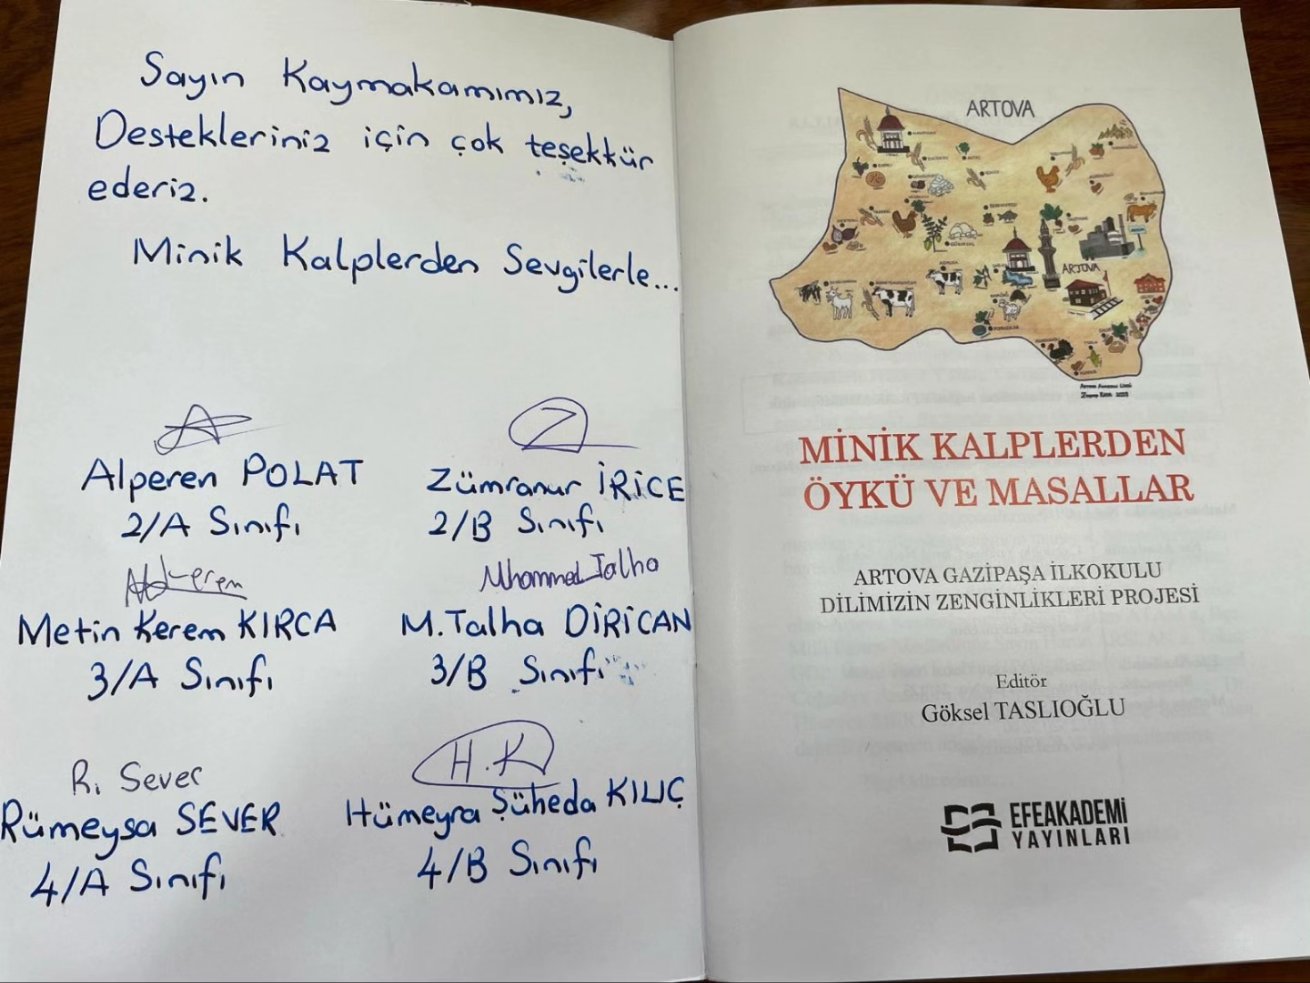 Sayın Kaymakamımız,
Destekleriniz için çok teşekkür
ederiz.
Minik Kalplerden Sevgilerle...
A
Z
Alperen POLAT
Zümranur İRİCE
2/A Sınıfı
2/B Sınıfı
Mhammed Talha
Metin Kerem KIRCA
M. Talha DİRİCAN
3/A Sınıfı
3/B Sınıfı
R. Sever
H.K
Rümeysa SEVER
Hümeyra Şüheda KILIÇ
4/A Sınıfı
4/B Sınıfı
ARTOVA
ARTOVA
MİNİK KALPLERDEN
ÖYKÜ VE MASALLAR
ARTOVA GAZİPAŞA İLKOKULU
DİLİMİZİN ZENGİNLİKLERİ PROJESİ
Editör
Göksel TASLIOĞLU
EFEAKADEMİ
YAYINLARI